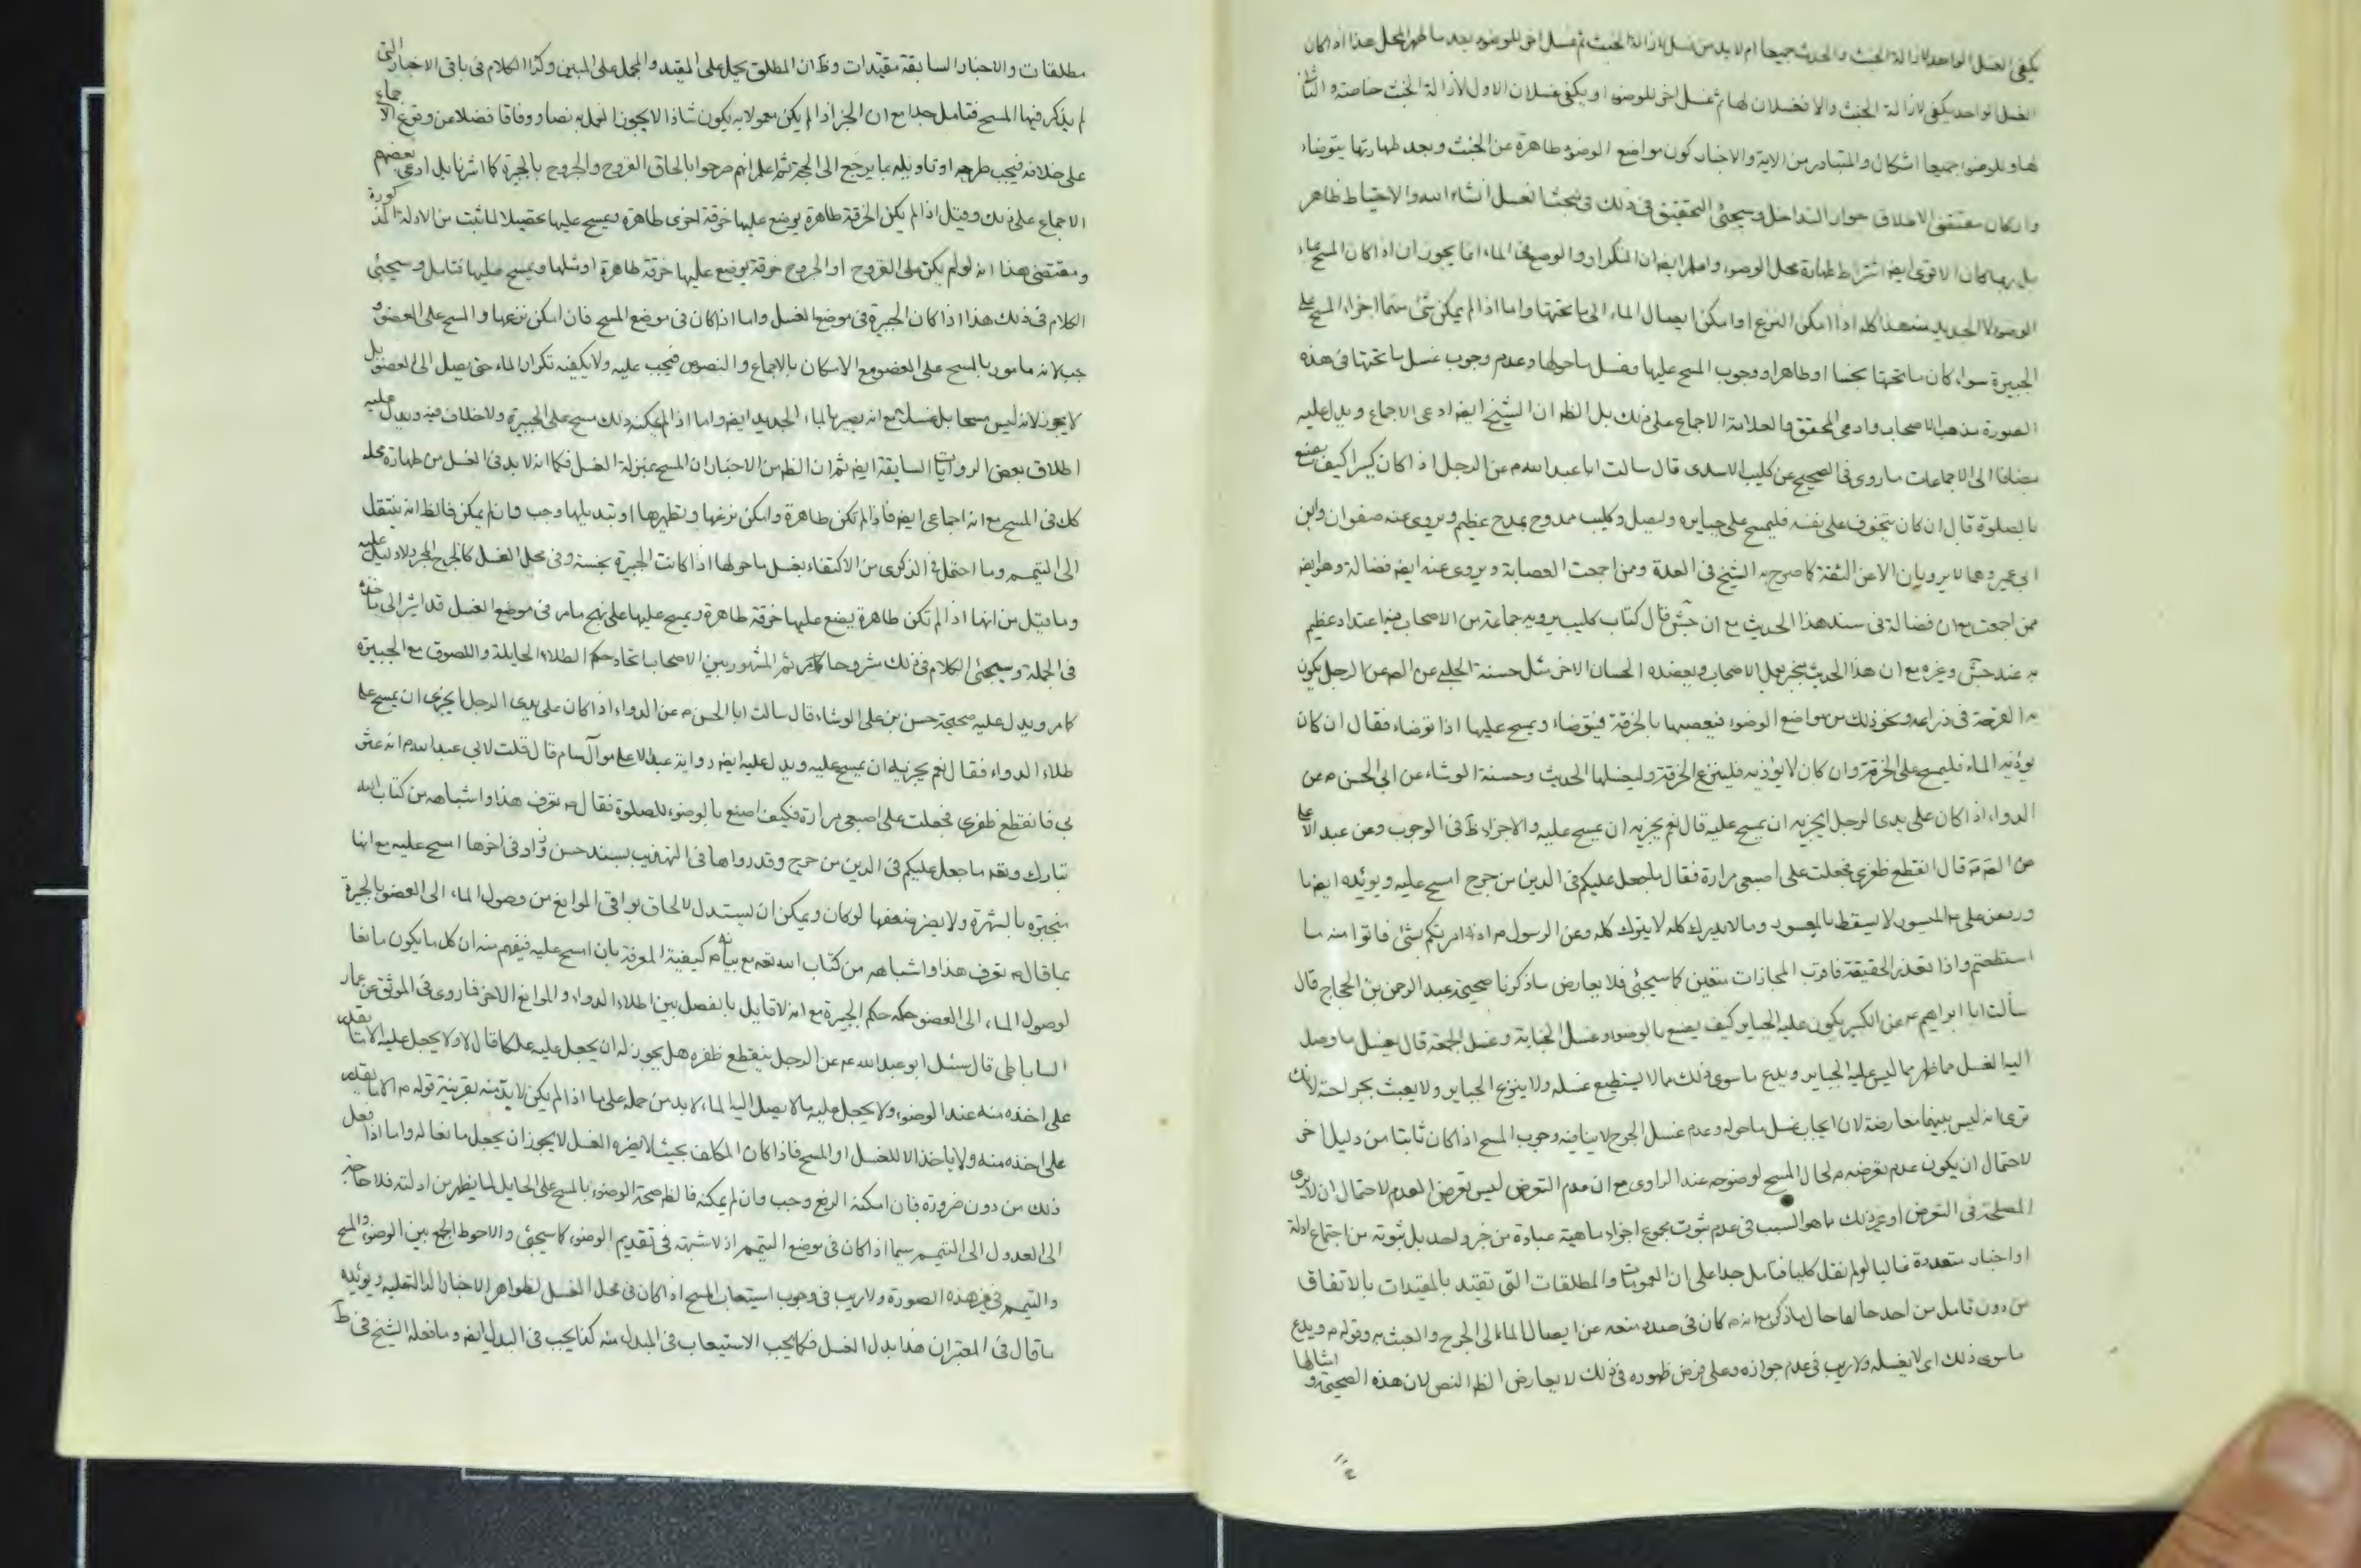 يكفى الغسل الواحد لازالة الخبث والحدث جميعا ام لابد من غسل لازالة الخبث ثم غسل اخر للوضوء بعد ما طهر المحل هذا اذا كان
الغسل الواحد يكفى لازالة الخبث والا فغسلان لها ثم غسل اخر للوضوء او يكفى غسلان الاول لازالة الخبث خاصته والثانى
لها وللوضوء جميعا اشكال والمتبادر من الاية والاخبار كون مواضع الوضوء طاهرة عن الخبث وبعد طهارتها يتوضاء
وان كان مقتضى الاطلاق جواز التداخل وسيجئ التحقيق فى ذلك فى مبحث الغسل انشاء الله والاحتياط ظاهر
بل ربما كان الاقوى ايض اشتراط طهارة محل الوضوء واعلم ايض ان التكرار والوضع فى الماء انما يجوز ان اذا كان المسح بماء
الوضوء لا الجديد هذا كله اذا امكن النزع او امكن ايصال الماء الى ما تحتها واما اذا لم يمكن شئ منهما اجزاء المسح على
الجبيرة سواء كان ما تحتها نجسا او طاهرا ووجوب المسح عليها وغسل ما حولها وعدم وجوب غسل ما تحتها فى هذه
الصورة مذهب الاصحاب وادعى المحقق والعلامة الاجماع على ذلك بل الظ ان الشيخ ايض ادعى الاجماع ويدل عليه
مضافا الى الاجماعات ما روى فى الصحيح عن كليب الاسدى قال سالت ابا عبد الله م عن الرجل اذا كان كسيرا كيف يصنع
بالصلوة قال ان كان يتخوف على نفسه فليمسح على جبايره وليصل وكليب ممدوح بمدح عظيم ويروى عنه صفوان وابن
ابى عمير وهما لا يرويان الا عن الثقة كما صرح به الشيخ فى العدة وممن اجمعت العصابة ويروى عنه ايض فضالة وهو ايض
ممن اجمعت مع ان فضالة فى سند هذا الحديث مع ان جش قال كتاب كليب يرويه جماعة من الاصحاب فيه اعتداد عظيم
به عند جش وغيره مع ان هذا الحديث منجبر بعمل الاصحاب ويعضده الحسان الاخر مثل حسنة الحلبى عن الص عن الرجل يكون
به القرحة فى ذراعه ونحو ذلك من مواضع الوضوء فيعصبها بالخرقة فيتوضاء ويمسح عليها اذا توضاء فقال ان كان
يؤذيه الماء فليمسح على الخرقة وان كان لا يؤذيه فلينزع الخرقة وليغسلها الحديث وحسنة الوشاء عن ابى الحسن م عن
الدواء اذا كان على يدى الرجل ايجزيه ان يمسح عليه قال نعم يجزيه ان يمسح عليه والاجزاء ظ فى الوجوب وعن عبد الاعلى
عن الص م قال انقطع ظفرى فجعلت على اصبعى مرارة فقال ما جعل عليكم فى الدين من حرج امسح عليه ويؤيده ايض ما
ورد عن على م الميسور لا يسقط بالمعسور وما لا يدرك كله لا يترك كله وعن الرسول م اذا امرتكم بشئ فاتوا منه ما
استطعتم واذا تعذر الحقيقة فاقرب المجازات متعين كما سيجئ فلا يعارض ما ذكرنا صحيحة عبد الرحمن بن الحجاج قال
سألت ابا ابراهيم م عن الكسير يكون عليه الجباير كيف يصنع بالوضوء وغسل الجنابة وغسل الجمعة قال يغسل ما وصل
اليه الغسل مما ظهر مما ليس عليه الجباير ويدع ما سوى ذلك مما لا يستطيع غسله ولا ينزع الجباير ولا يعبث بجراحته لانك
ترى انه ليس بينهما معارضة لان ايجاب غسل ما حوله وعدم غسل الجرح لا ينافيه وجوب المسح اذا كان ثابتا من دليل اخر
لاحتمال ان يكون عدم تعرضه م لحال المسح لوضوحه عند الراوى مع ان عدم التعرض ليس تعرض العدم لاحتمال ان لا يرى
المصلحة فى التعرض او غير ذلك ما هو السبب فى عدم ثبوت مجموع اجزاء ماهية عبادة من خبر واحد بل ثبوته من اجتماع ادلة
او اخبار متعددة غالبا لو لم نقل كليا فتامل جدا على ان العمومات والمطلقات التى تقيد بالمقيدات بالاتفاق
من دون تامل من احد حالها حال ما ذكر مع انه م كان فى صدد منعه عن ايصال الماء الى الجرح والعبث به وقوله م ويدع
ما سوى ذلك اى لا يغسله ولا ريب فى عدم جوازه وعلى فرض ظهوره فى ذلك لا يعارض الظ النص لان هذه الصحيحة وامثالها
مطلقات والاخبار السابقة مقيدات وظ ان المطلق يحمل على المقيد والمجمل على المبين وكذا الكلام فى باقى الاخبار التى
لم يذكر فيها المسح فتامل جدا مع ان الخبر اذا لم يكن معمولا به يكون شاذا لا يجوز العمل به نصا ووفاقا فضلا عن وقوع الاجماع
على خلافه فيجب طرحه او تاويله بما يرجع الى الحجة ثم اعلم انهم صرحوا بالحاق القروح والجروح بالجبيرة كما اشرنا بل ادعى بعضهم
الاجماع على ذلك وقيل اذا لم يكن الخرقة طاهرة يوضع عليها خرقة اخرى طاهرة ويمسح عليها تحصيلا لما ثبت من الادلة المذكورة
ومقتضى هذا انه لو لم يكن على القروح او الجروح خرقة يوضع عليها خرقة طاهرة او مثلها ويمسح عليها فتامل وسيجئ
الكلام فى ذلك هذا اذا كان الجبيرة فى موضع الغسل واما اذا كان فى موضع المسح فان امكن نزعها والمسح على العضو و
جب لانه مامور بالمسح على العضو مع الامكان بالاجماع والنصوص فيجب عليه ولا يكفيه تكرار الماء حتى يصل الى العضو بل
لا يجوز لانه ليس مسحا بل غسل مع انه يصير بالماء الجديد ايض واما اذا لم يمكنه ذلك مسح على الجبيرة ولا خلاف فيه ويدل عليه
اطلاق بعض الروايات السابقة ايض ثم ان الظ من الاخبار ان المسح بمنزلة الغسل فكما انه لابد فى الغسل من طهارة محله
كك فى المسح مع انه اجماعى ايض فاذا لم تكن طاهرة وامكن نزعها وتطهيرها او تبديلها وجب وان لم يمكن فالظ انه ينتقل
الى التيمم وما احتمل فى الذكرى من الاكتفاء بغسل ما حولها اذا كانت الجبيرة نجسة وفى محل الغسل كالجرح المجرد لا دليل عليه
وما قيل من انها اذا لم تكن طاهرة يضع عليها خرقة طاهرة ويمسح عليها على نهج ما مر فى موضع الغسل قد اشير الى ماخذه
فى الجملة وسيجئ الكلام فى ذلك مشروحا كما مر ثم المشهور بين الاصحاب اتحاد حكم الطلاء الحايلة واللصوق مع الجبيرة
كما مر ويدل عليه صحيحة حسن بن على الوشاء قال سالت ابا الحسن م عن الدواء اذا كان على يدى الرجل ايجزى ان يمسح على
طلاء الدواء فقال نعم يجزيه ان يمسح عليه ويدل عليه ايض رواية عبد الاعلى مولى آل سام قال قلت لابى عبد الله م انه عثرت
بى فانقطع ظفرى فجعلت على اصبعى مرارة فكيف اصنع بالوضوء للصلوة فقال م تعرف هذا واشباهه من كتاب الله
تبارك وتعه ما جعل عليكم فى الدين من حرج وقد رواها فى التهذيب بسند حسن وزاد فى اخرها امسح عليه مع انها
منجبرة بالشهرة ولا يضر ضعفها لو كان ويمكن ان يستدل لالحاق بواقى الموانع من وصول الماء الى العضو بالجبيرة
بما قال م تعرف هذا واشباهه من كتاب الله تعه مع بيانه م كيفية المعرفة بان امسح عليه فيفهم منه ان كل ما يكون مانعا
لوصول الماء الى العضو حكمه حكم الجبيرة مع انه لا قايل بالفصل بين اطلاء الدواء والموانع الاخر فما روى فى الموثق عن عمار
الساباطى قال سئل ابو عبد الله م عن الرجل ينقطع ظفره هل يجوز له ان يجعل عليه علكا قال لا ولا يجعل عليه الا ما يقدر
على اخذه منه عند الوضوء ولا يجعل عليه ما لا يصل اليه الماء لابد من حمله على ما اذا لم يكن لابد منه بقرينة قوله م الا ما يقدر
على اخذه منه ولا ياخذ الا للغسل او المسح فاذا كان المكلف بحيث لا يضره الغسل لا يجوز ان يجعل مانعا له واما اذا فعل
ذلك من دون ضرورة فان امكنه الرفع وجب وان لم يمكنه فالظ صحة الوضوء بالمسح على الحايل لما يظهر من ادلته فلا حاجة
الى العدول الى التيمم سيما اذا كان فى موضع التيمم اذ لا شبهة فى تقديم الوضوء كما سيجئ والاحوط الجمع بين الوضوء والمسح
والتيمم فى غير هذه الصورة ولا ريب فى وجوب استيعاب المسح اذا كان فى محل الغسل لظواهر الاخبار الدالة عليه ويؤيده
ما قال فى المعتبر ان هذا بدل الغسل فكما يجب الاستيعاب فى المبدل منه كذا يجب فى البدل ايض وما فعله الشيخ فى ط